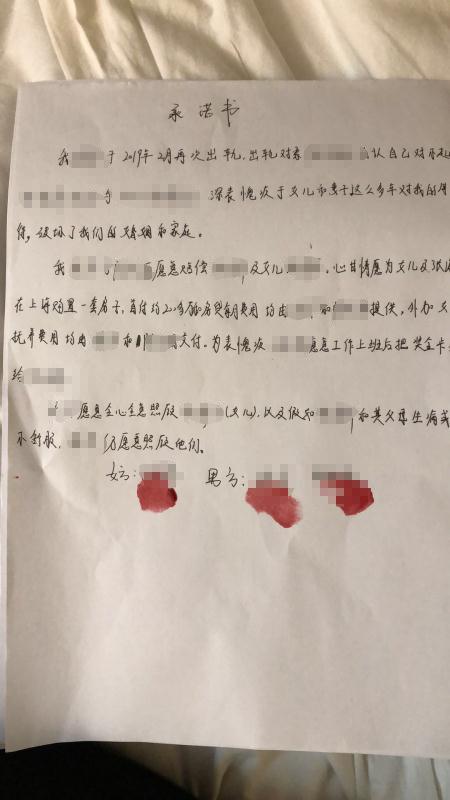 承诺书
我 于2019年2月再次出轨,出轨对象 认自己对不起
与 深表愧疚于女儿和妻子这么多年对我的
任,破坏了我们的婚姻和家庭。
我 愿意赔偿 及女儿 。心甘情愿为女儿及
在上海购置一套房子,首付约220多万 房贷每月费用均由 和 提供,外加
抚养费用均由 和 交付。为表愧疚 愿意工作上班后把奖金卡
给
愿意全心全意照顾 (女儿),以及假如 和其父母生病或
不舒服, 仍愿意照顾他们。
女方: 男方: